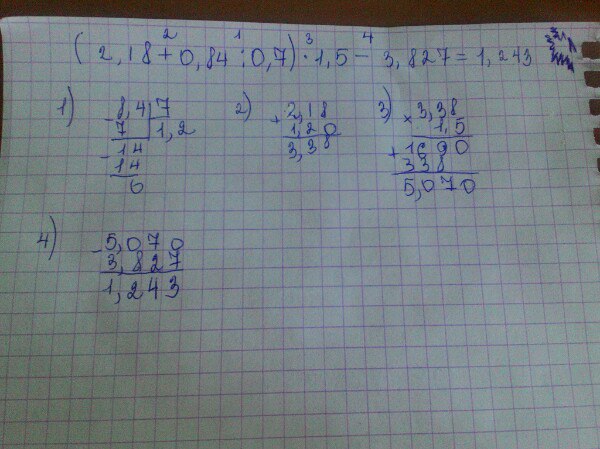 2 1 3 4
(2,18+0,84:0,7)·1,5-3,827=1,243
1) 2) 3)
8,4|7 2,18 × 3,38
- 7 1,2 + 1,20 1,5
- 14 3,38 + 1690
14 338
0 5,070
4)
- 5,070
3,827
1,243